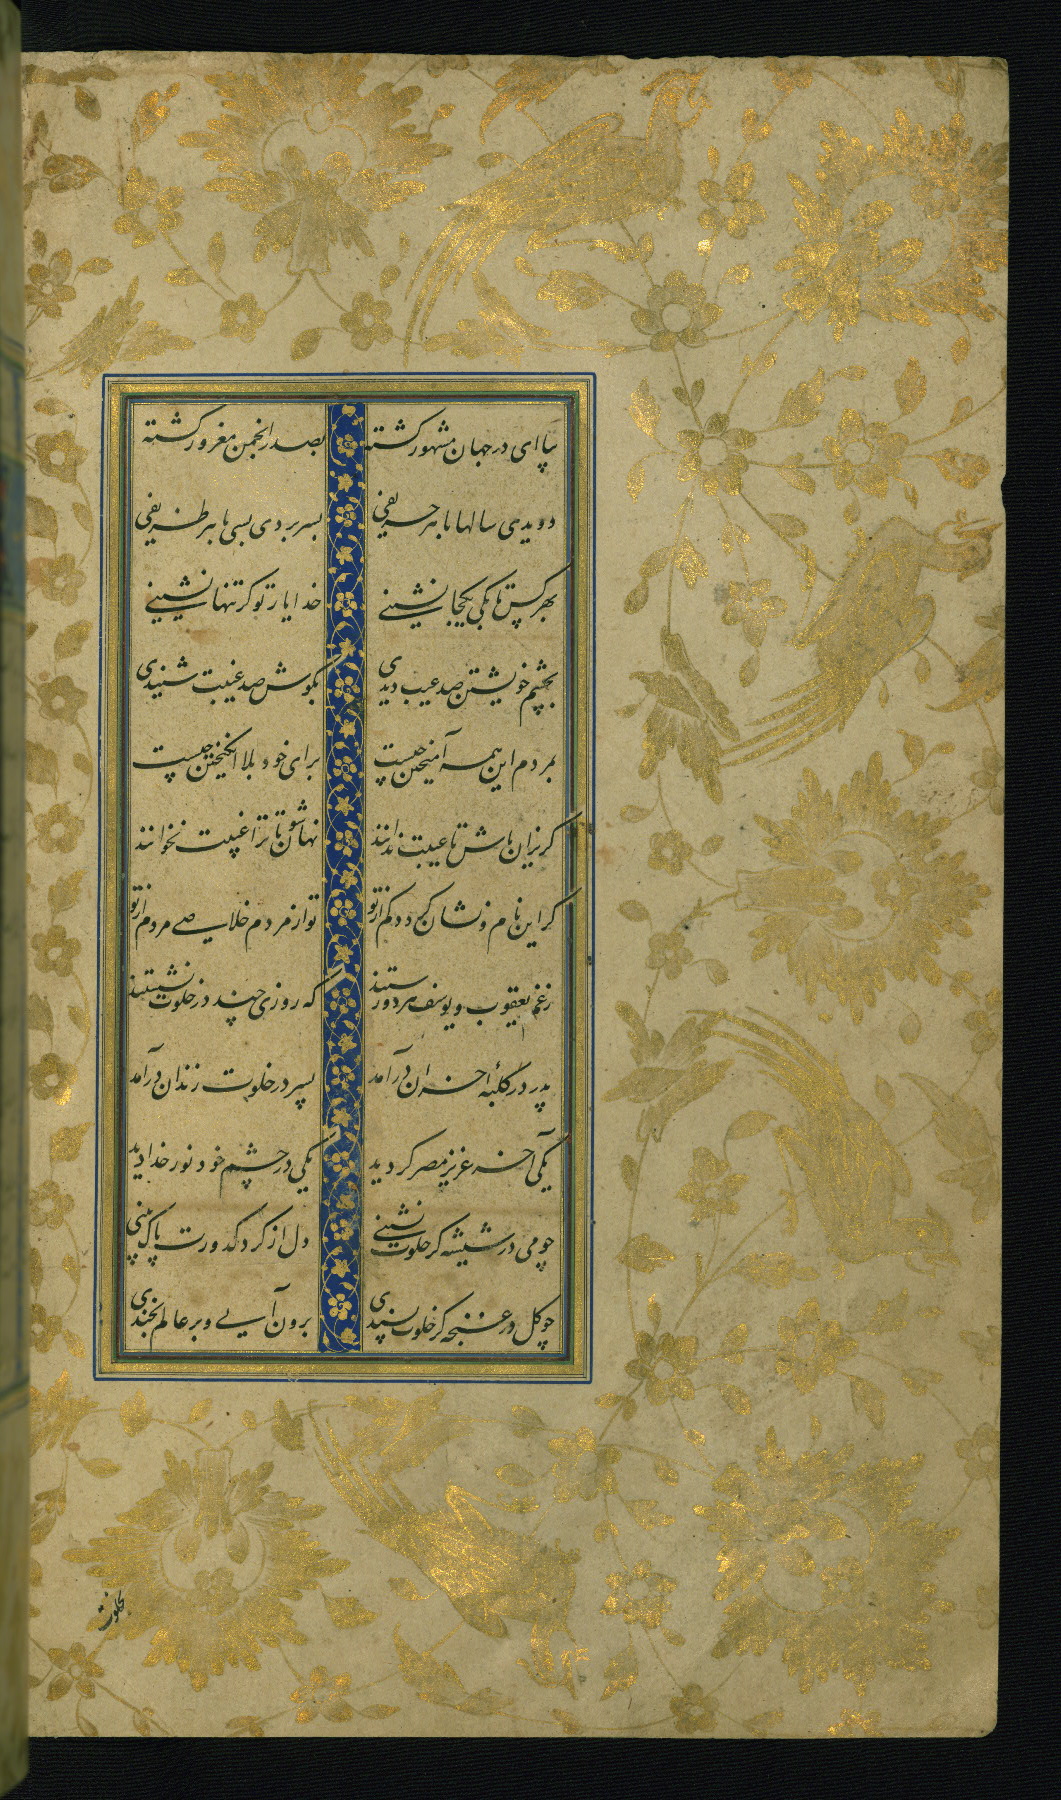 بیا ای در جهان مشهور کشته بصدر انجمن مغرور کشته
دویدی سالها با هر حریفی بسر بردی بسی با هر ظریفی
بهر کس تا بکی یکجا نشینی خدا یار تو کر تنها نشینی
بچشم خویشتن صد عیب دیدی بکوش صد غیبت شنیدی
بمردم این همه آمیختن چیست برای خود بلا انکیختن چیست
کریزان باش تا عیبت ندانند نهان شو تا ترا غیبت نخوانند
کر این نام و نشان کردد کم از تو تو از مردم خلاصی مردم از تو
زغم یعقوب و یوسف هر دو رستند که روزی چند در خلوت نشستند
پدر در کلبه احزان درآمد پسر در خلوت زندان درآمد
یکی آخر عزیز مصر کردید یکی در چشم خود نور خدا دید
چو می در شیشه کر خلوت نشینی دل از کرد کدورت پاک بینی
چو کل در غنچه کر خلوت پسندی برون آیی و بر عالم بخندی
بخلوت